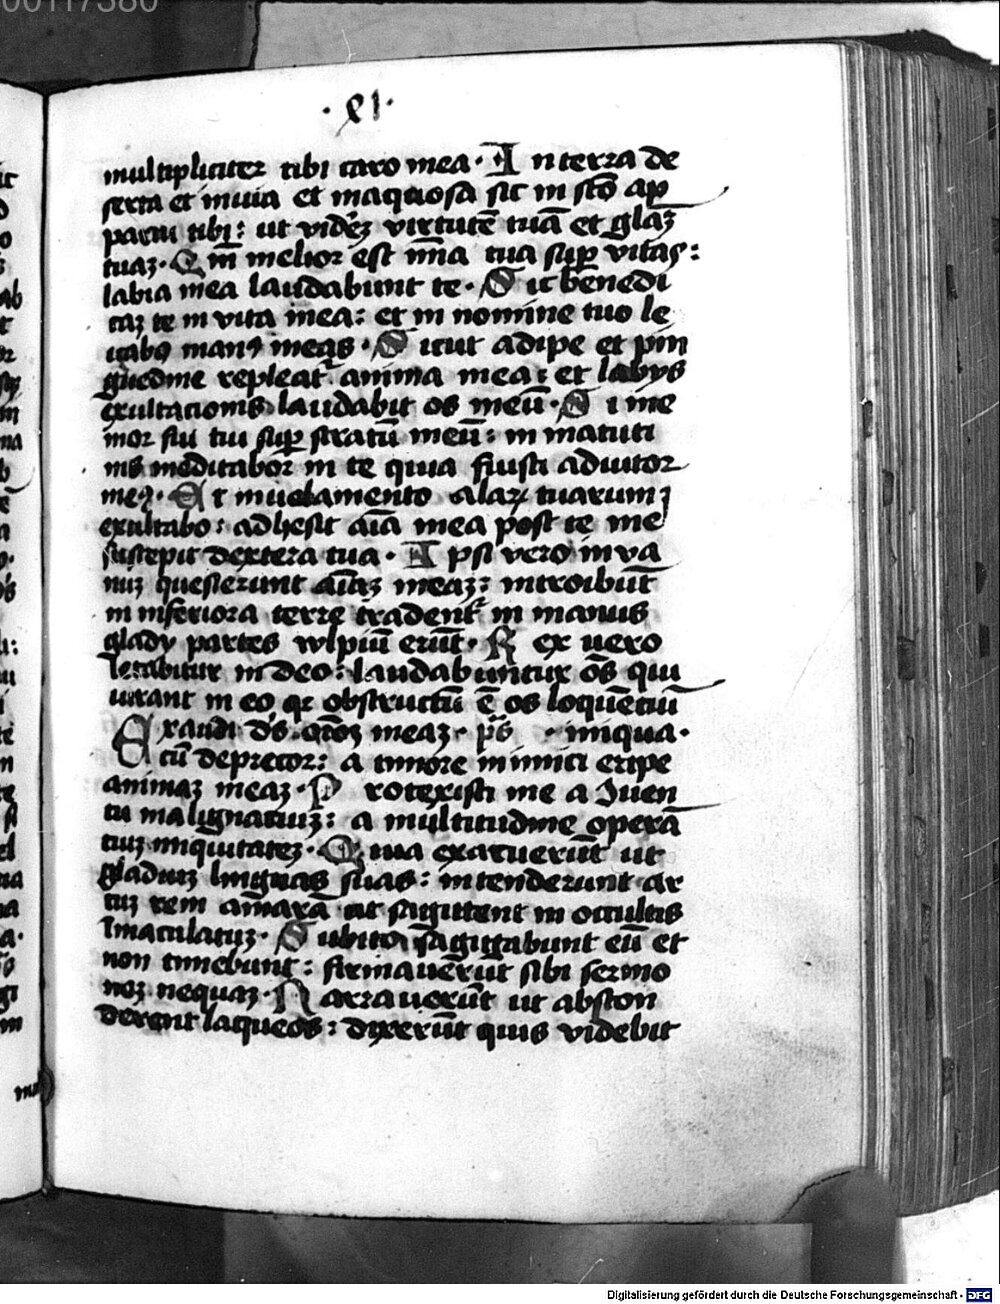 00117380
· xl ·
multipliciter tibi caro mea · In terra de
serta et inuia et inaquosa sic in sc̄o ap
parui tibi : ut videꝫ virtutē tuā et glaꝫ
tuaꝫ · Qm̄ melior est mīa tua suꝑ vitas :
labia mea laudabunt te · Sic benedi
caꝫ te in vita mea : et in nomine tuo le
uabo manꝰ meas · Sicut adipe et pin
guedine repleat᷑ anima mea : et labijs
exultacionis laudabit os meū · Si me
mor fui tui suꝑ stratū meū : in matuti
nis meditabor in te quia fuisti adiutor
meꝰ · Et in uelamento alaꝝ tuarum
exultabo : adhesit aīa mea post te me
suscepit dextera tua · Ipsi vero in va
nuꝫ quesierunt aīaꝫ meaꝫ : introibūt
in inferiora terre tradent᷑ in manus
gladij partes wlpiū erūt · Rex uero
letabitur in deo : laudabuntur oēs qui
iurant in eo qꝛ obstructū ē os loquētiū
Exaudi ds̄ or̄oꝫ meaꝫ · ps̄ · iniqua ·
cū deprecor : a timore inimici eripe
animaꝫ meaꝫ · Protexisti me a Juen
tu malignatiuꝫ : a multitudine operā
tiuꝫ iniquitateꝫ · Quia exacuerūt ut
gladiuꝫ linguas suas : intenderunt ar
cuꝫ rem amarā ut sagittent in ocultis
Imaculatuꝫ · Subito sagittabunt eū et
non timebunt : firmauerūt sibi sermo
noꝫ nequaꝫ · Narrauerūt ut abscon
derent laqueos : dixerūt quis videbit
Digitalisierung gefördert durch die Deutsche Forschungsgemeinschaft - DFG